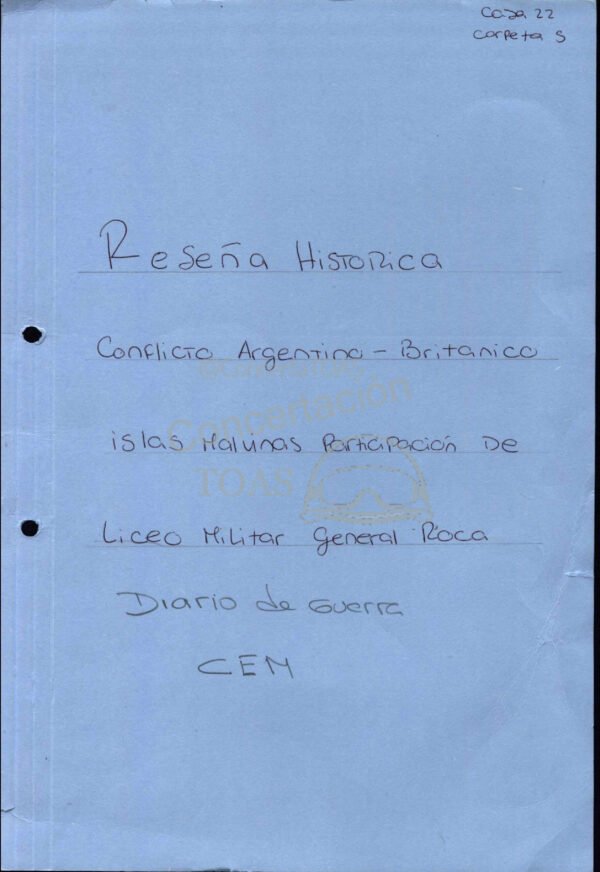 Caja 22
Carpeta S
Reseña Historica
Conflicto Argentino - Britanico
islas Malvinas Participación De
Liceo Militar General Roca
Diario de Guerra
CEM
Concertación
TOAS